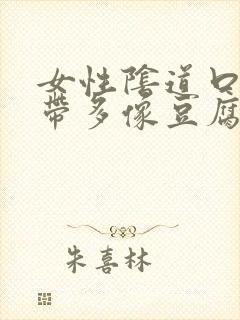 女性陰道口
帶多像豆腐
朱喜林